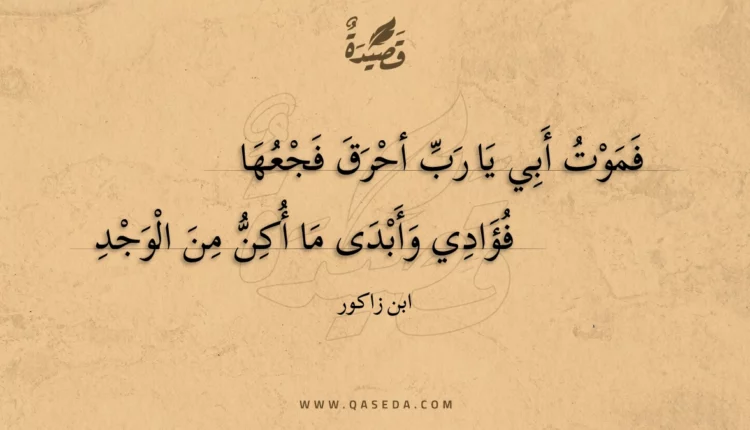 قَصِيْدَةٌ
فَمَوْتُ أَبِي يَا رَبِّ أحْرَقَ فَجْعُهَا
فُؤَادِي وَأَبْدَى مَا أُكِنُّ مِنَ الْوَجْدِ
ابن زاكور
WWW.QASEDA.COM